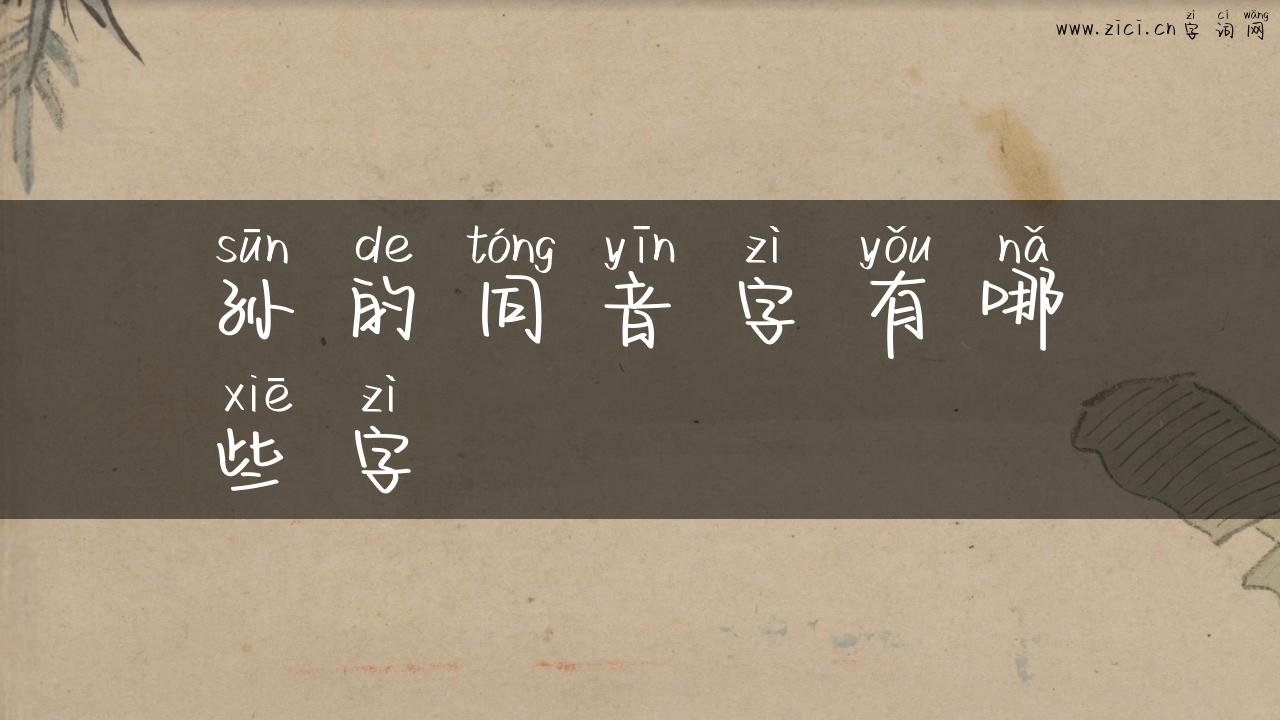 zì cí wǎng
www.zici.cn 字词网
sūn de tóng yīn zì yǒu nǎ
孙的同音字有哪
xiē zì
些字